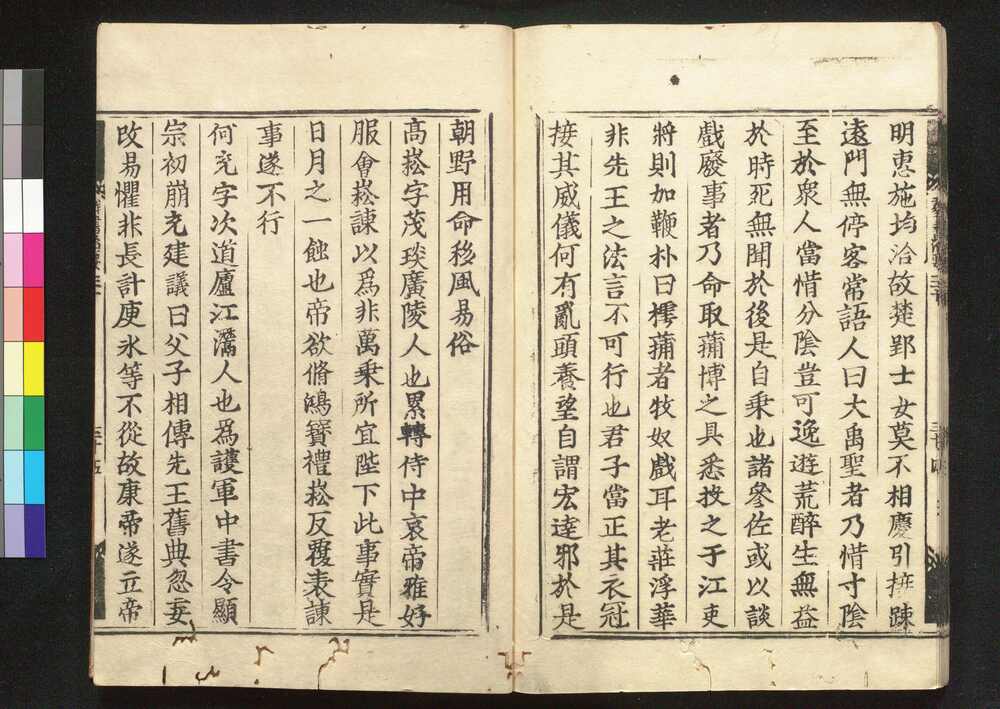 明恵施均洽故楚郢士女莫不相慶引接踈
遠門無停客常語人曰大禹聖者乃惜寸陰
至於衆人當惜分陰豈可逸遊荒醉生無益
於時死無聞於後是自乗也諸參佐或以談
戲廢事者乃命取蒱博之具悉投之于江吏
將則加鞭朴曰樗蒱者牧奴戲耳老莊浮華
非先王之法言不可行也君子當正其衣冠
接其威儀何有亂頭養望自謂宏達邪於是
朝野用命移風易俗
髙崧字茂琰廣陵人也累轉侍中哀帝雅好
服㑹崧諫以爲非萬乗所宜陛下此事實是
日月之一蝕也帝欲脩鴻寳禮崧反覆表諫
事遂不行
何充字次道廬江灊人也爲護軍中書令顯
宗初崩充建議曰父子相傳先王舊典忽妄
改易懼非長計庾氷等不從故康帝遂立帝